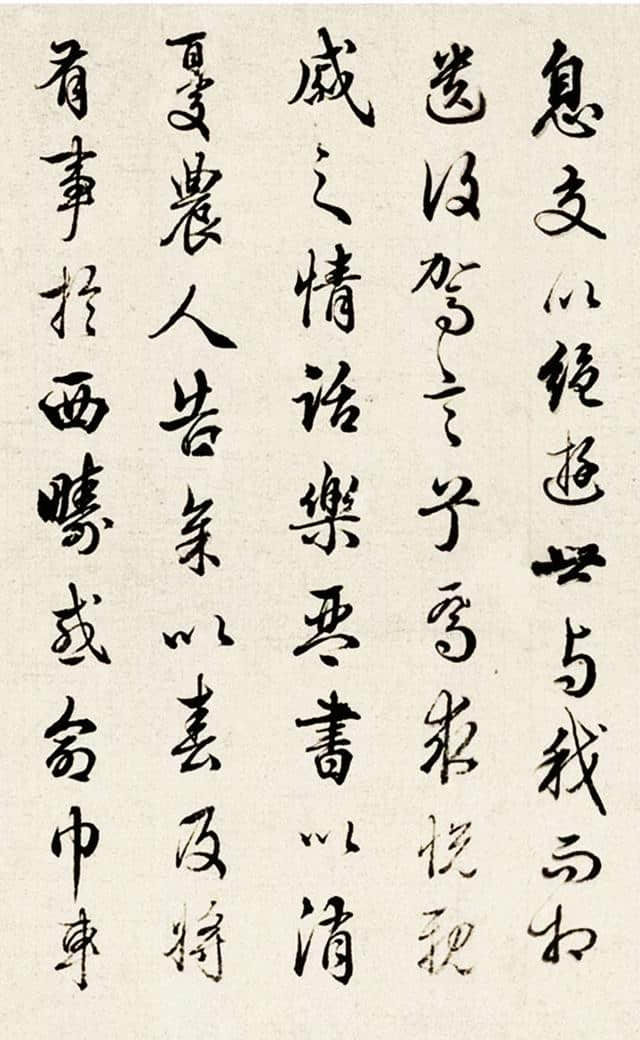 息交以絕遊世与我而相
遺復駕言兮焉求悅親
戚之情話樂琴書以消
憂農人告余以春及將
有事於西疇或命巾車